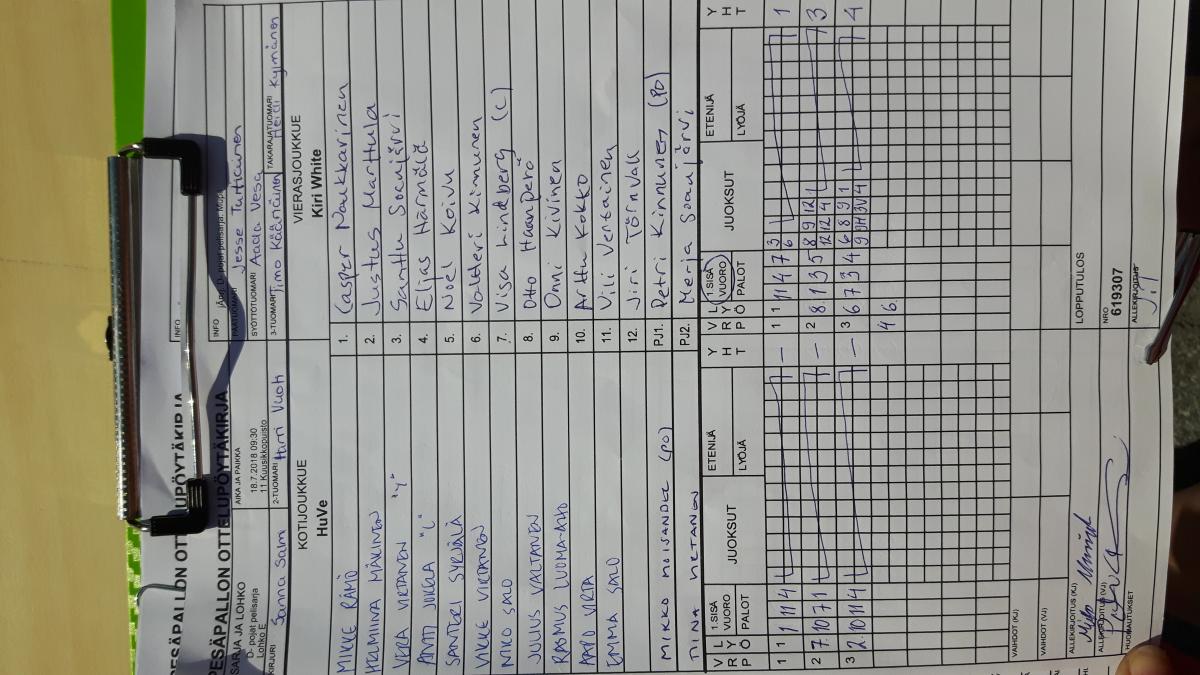 PESÄPALLON OTTELUPÖYTÄKIRJA
INFO
PESÄPALLON OTTELUPÖYTÄKIRJA
SARJA JA LOHKO
D- pojat pelisarja
Lohko E
AIKA JA PAIKKA
18.7.2018 09:30
11 Kuusikkopuisto
INFO
PÄÄTUOMARI Jesse Turtiainen
SYÖTTÖTUOMARI Aada Vesa
KIRJURI Sanna Salm
2-TUOMARI Harri Vuoti
3-TUOMARI Timo Kääriäinen
TAKARAJATUOMARI Heidi Kylmänen
KOTIJOUKKUE
HuVe
VIERASJOUKKUE
Kiri White
MIKKE RÄMÖ
1. Casper Paukkarinen
HELMIINA MÄKINEN
2. Justus Marttula
VEERA VIRTANEN "V"
3. Santtu Soanjärvi
ANTTI JOKELA "C"
4. Elias Härmälä
SANTERI SYRJÄLÄ
5. Noel Koivu
VIKKE VIRTANEN
6. Valtteri Kimunen
NIKO SALO
7. Visa Lindberg (C)
JULIUS VALTANEN
8. Otto Haanperä
RASMUS LUOMA-AHO
9. Onni Kivinen
AAPO VIRTA
10. Arttu Kokko
EMMA SALO
11. Vili Ventainen
12. Jiri Törnvall
MIKKO MOISANDER (PO)
PJ1. Petri Kinnunen (PO)
MINA HETANEN
PJ2. Merja Soanjärvi
V R P
L Y Ö
1.SISÄ VUORO
PALOT
JUOKSUT
ETENIJÄ
LYÖJÄ
Y H T
V R P
L Y Ö
1.SISÄ VUORO
PALOT
JUOKSUT
ETENIJÄ
LYÖJÄ
Y H T
1 1 1 11 4 –
1 1 11 4 7 3 1
6
2 7 10 7 1 –
2 8 1 3 5 8 9 12 1 3
12 12 4
3 2 10 11 4 –
3 6 7 3 4 6 8 9 1 4
9 9H 3V 4
4 6
VAIHDOT (KJ)
VAIHDOT (VJ)
LOPPUTULOS
ALLEKIRJOITUS (KJ)
ALLEKIRJOITUS (VJ)
HUOMAUTUKSET
NRO
619307
ALLEKIRJOITUS